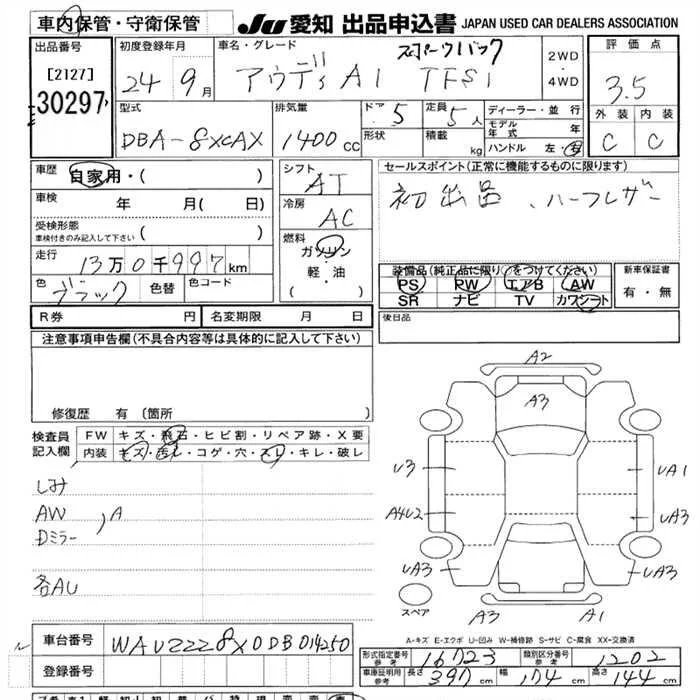 車内保管・守衛保管
JU 愛知 出品申込書 JAPAN USED CAR DEALERS ASSOCIATION
出品番号 [2127] 30297
初度登録年月 24 9月
車名・グレード アウディ A1 TFSI スポーツバック
2WD・4WD
評価点 3.5
外装 C 内装 C
型式 DBA-8XCAX
排気量 1400cc
ドア 5 定員 5人
形状 積載 kg
ディーラー・並行
モデル年式 年
ハンドル 左・右
車歴 自家用・( )
車検 年 月( 日)
受検形態 車検付きのみ記入して下さい ( )
走行 13万0千997km
色 ブラック 色替 色コード
シフト AT
冷房 AC
燃料 ガソリン・軽・油・( )
セールスポイント(正常に機能するものに限ります)
初出品、ハーフレザー
装備品(純正品に限り○をつけてください)
PS PW エアB AW
SR ナビ TV カワシート
新車保証書 有・無
R券 円 名変期限 月 日
後日品
注意事項申告欄(不具合内容等は具体的に記入して下さい)
修復歴 有 (箇所
検査員記入欄
FW キズ・飛石・ヒビ割・リペア跡・X要
内装 キズ・汚レ・コゲ・穴・スレ・キレ・破レ
しみ
AW 、A
Dミラー
各AU
A2
A3
U3
UA1
A4U2
UA3
UA3
UA3
スペア
A3
A1
A-キズ E-エクボ U-凹み W-補修跡 S-サビ C-腐食 XX-交換済
車台番号 WAUZZZ8X0DB014250
登録番号
形式指定番号 参考 16723 類別区分番号 参考 1202
車庫証明用 参考 長さ 397cm 幅 174cm 高さ 144cm